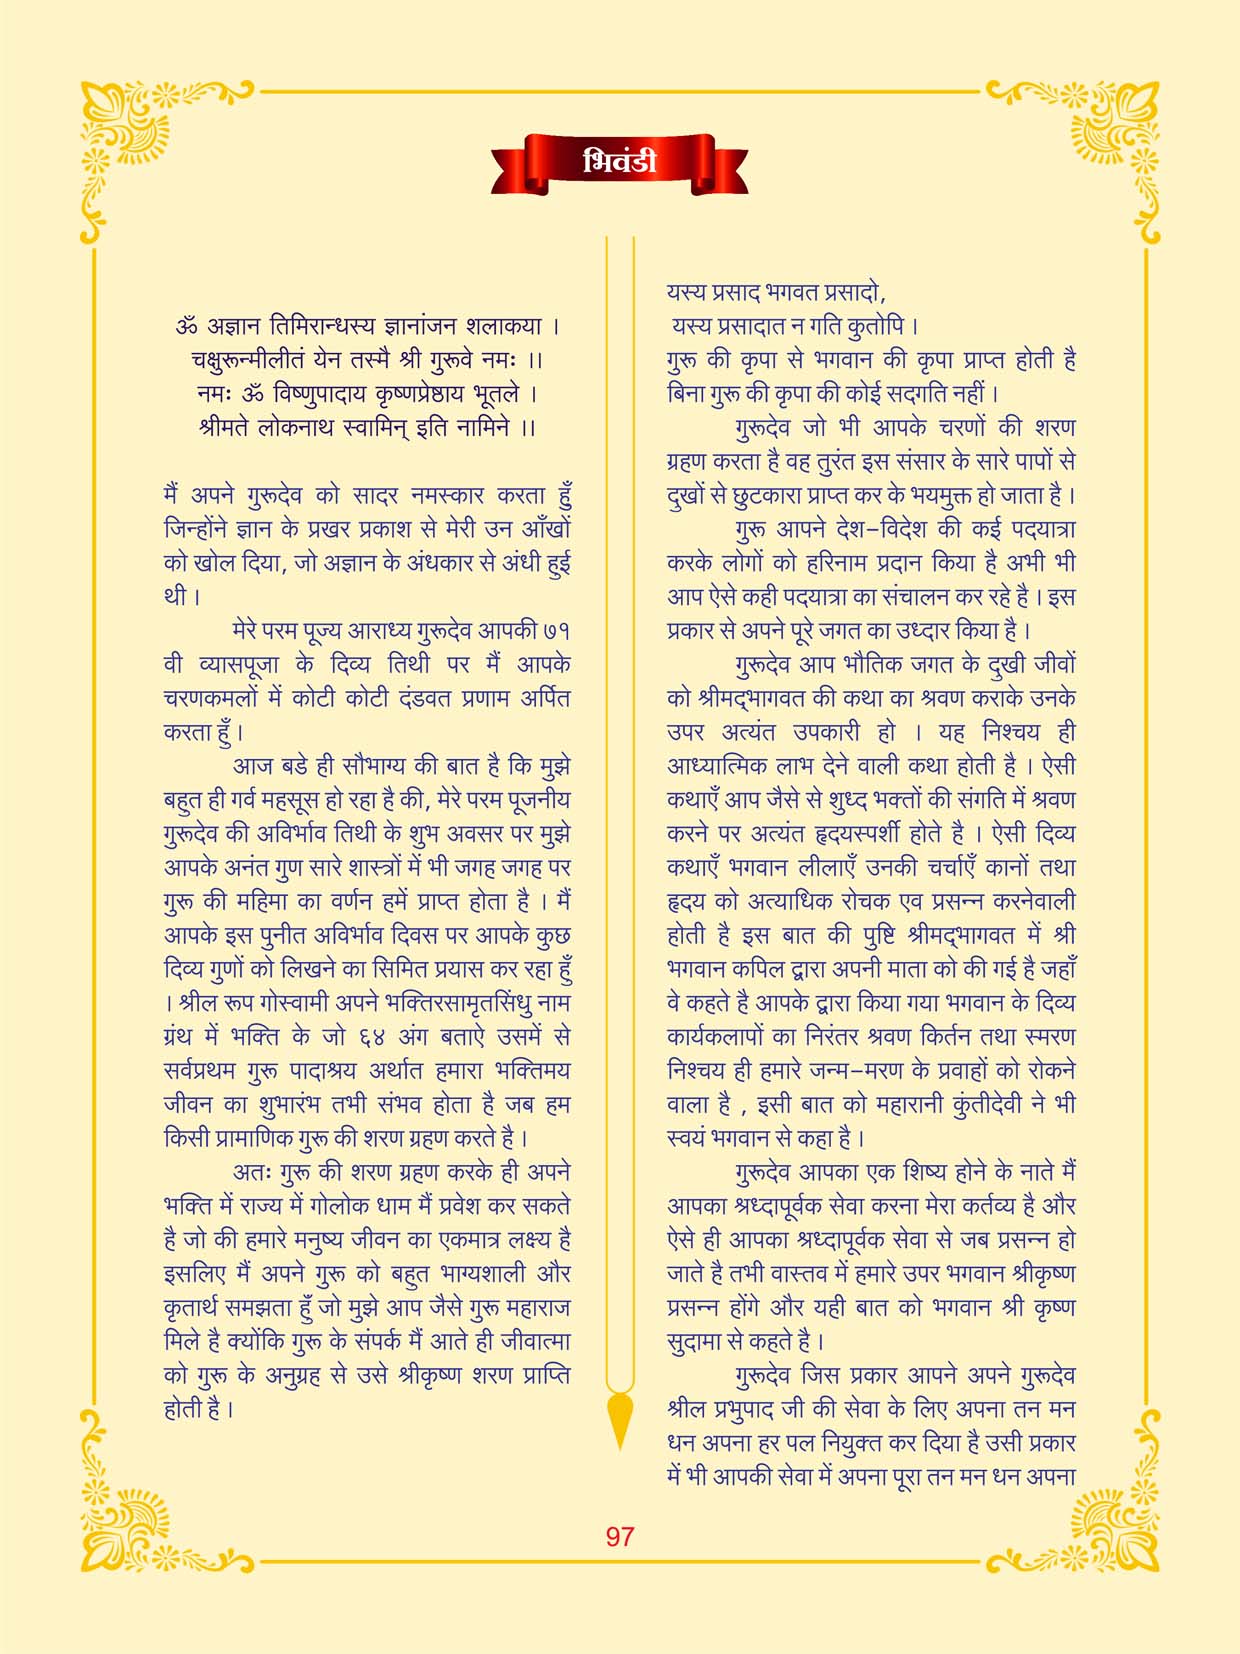 भिवंडी
ॐ अज्ञान तिमिरान्धस्य ज्ञानांजन शलाकया ।
चक्षुरून्मीलीतं येन तस्मै श्री गुरूवे नमः ।।
नमः ॐ विष्णुपादाय कृष्णप्रेष्ठाय भूतले ।
श्रीमते लोकनाथ स्वामिन् इति नामिने ।।
मैं अपने गुरूदेव को सादर नमस्कार करता हूँ
जिन्होंने ज्ञान के प्रखर प्रकाश से मेरी उन आँखों
को खोल दिया, जो अज्ञान के अंधकार से अंधी हुई
थी ।
मेरे परम पूज्य आराध्य गुरूदेव आपकी ७१
वी व्यासपूजा के दिव्य तिथी पर मैं आपके
चरणकमलों में कोटी कोटी दंडवत प्रणाम अर्पित
करता हूँ ।
आज बडे ही सौभाग्य की बात है कि मुझे
बहुत ही गर्व महसूस हो रहा है की, मेरे परम पूजनीय
गुरूदेव की अविर्भाव तिथी के शुभ अवसर पर मुझे
आपके अनंत गुण सारे शास्त्रों में भी जगह जगह पर
गुरू की महिमा का वर्णन हमें प्राप्त होता है । मैं
आपके इस पुनीत अविर्भाव दिवस पर आपके कुछ
दिव्य गुणों को लिखने का सिमित प्रयास कर रहा हूँ
। श्रील रूप गोस्वामी अपने भक्तिरसामृतसिंधु नाम
ग्रंथ में भक्ति के जो ६४ अंग बताऐ उसमें से
सर्वप्रथम गुरू पादाश्रय अर्थात हमारा भक्तिमय
जीवन का शुभारंभ तभी संभव होता है जब हम
किसी प्रामाणिक गुरू की शरण ग्रहण करते है ।
अतः गुरू की शरण ग्रहण करके ही अपने
भक्ति में राज्य में गोलोक धाम मैं प्रवेश कर सकते
है जो की हमारे मनुष्य जीवन का एकमात्र लक्ष्य है
इसलिए मैं अपने गुरू को बहुत भाग्यशाली और
कृतार्थ समझता हुँ जो मुझे आप जैसे गुरू महाराज
मिले है क्योंकि गुरू के संपर्क मैं आते ही जीवात्मा
को गुरू के अनुग्रह से उसे श्रीकृष्ण शरण प्राप्ति
होती है ।
यस्य प्रसाद भगवत प्रसादो,
यस्य प्रसादात न गति कुतोपि ।
गुरू की कृपा से भगवान की कृपा प्राप्त होती है
बिना गुरू की कृपा की कोई सदगति नहीं ।
गुरूदेव जो भी आपके चरणों की शरण
ग्रहण करता है वह तुरंत इस संसार के सारे पापों से
दुखों से छुटकारा प्राप्त कर के भयमुक्त हो जाता है ।
गुरू आपने देश-विदेश की कई पदयात्रा
करके लोगों को हरिनाम प्रदान किया है अभी भी
आप ऐसे कही पदयात्रा का संचालन कर रहे है । इस
प्रकार से अपने पूरे जगत का उध्दार किया है ।
गुरूदेव आप भौतिक जगत के दुखी जीवों
को श्रीमद्‌भागवत की कथा का श्रवण कराके उनके
उपर अत्यंत उपकारी हो । यह निश्चय ही
आध्यात्मिक लाभ देने वाली कथा होती है । ऐसी
कथाएँ आप जैसे से शुध्द भक्तों की संगति में श्रवण
करने पर अत्यंत हृदयस्पर्शी होते है । ऐसी दिव्य
कथाएँ भगवान लीलाएँ उनकी चर्चाएँ कानों तथा
हृदय को अत्याधिक रोचक एव प्रसन्न करनेवाली
होती है इस बात की पुष्टि श्रीमद्‌भागवत में श्री
भगवान कपिल द्वारा अपनी माता को की गई है जहाँ
वे कहते है आपके द्वारा किया गया भगवान के दिव्य
कार्यकलापों का निरंतर श्रवण किर्तन तथा स्मरण
निश्चय ही हमारे जन्म-मरण के प्रवाहों को रोकने
वाला है , इसी बात को महारानी कुंतीदेवी ने भी
स्वयं भगवान से कहा है ।
गुरूदेव आपका एक शिष्य होने के नाते मैं
आपका श्रध्दापूर्वक सेवा करना मेरा कर्तव्य है और
ऐसे ही आपका श्रध्दापूर्वक सेवा से जब प्रसन्न हो
जाते है तभी वास्तव में हमारे उपर भगवान श्रीकृष्ण
प्रसन्न होंगे और यही बात को भगवान श्री कृष्ण
सुदामा से कहते है ।
गुरूदेव जिस प्रकार आपने अपने गुरूदेव
श्रील प्रभुपाद जी की सेवा के लिए अपना तन मन
धन अपना हर पल नियुक्त कर दिया है उसी प्रकार
में भी आपकी सेवा में अपना पूरा तन मन धन अपना
97